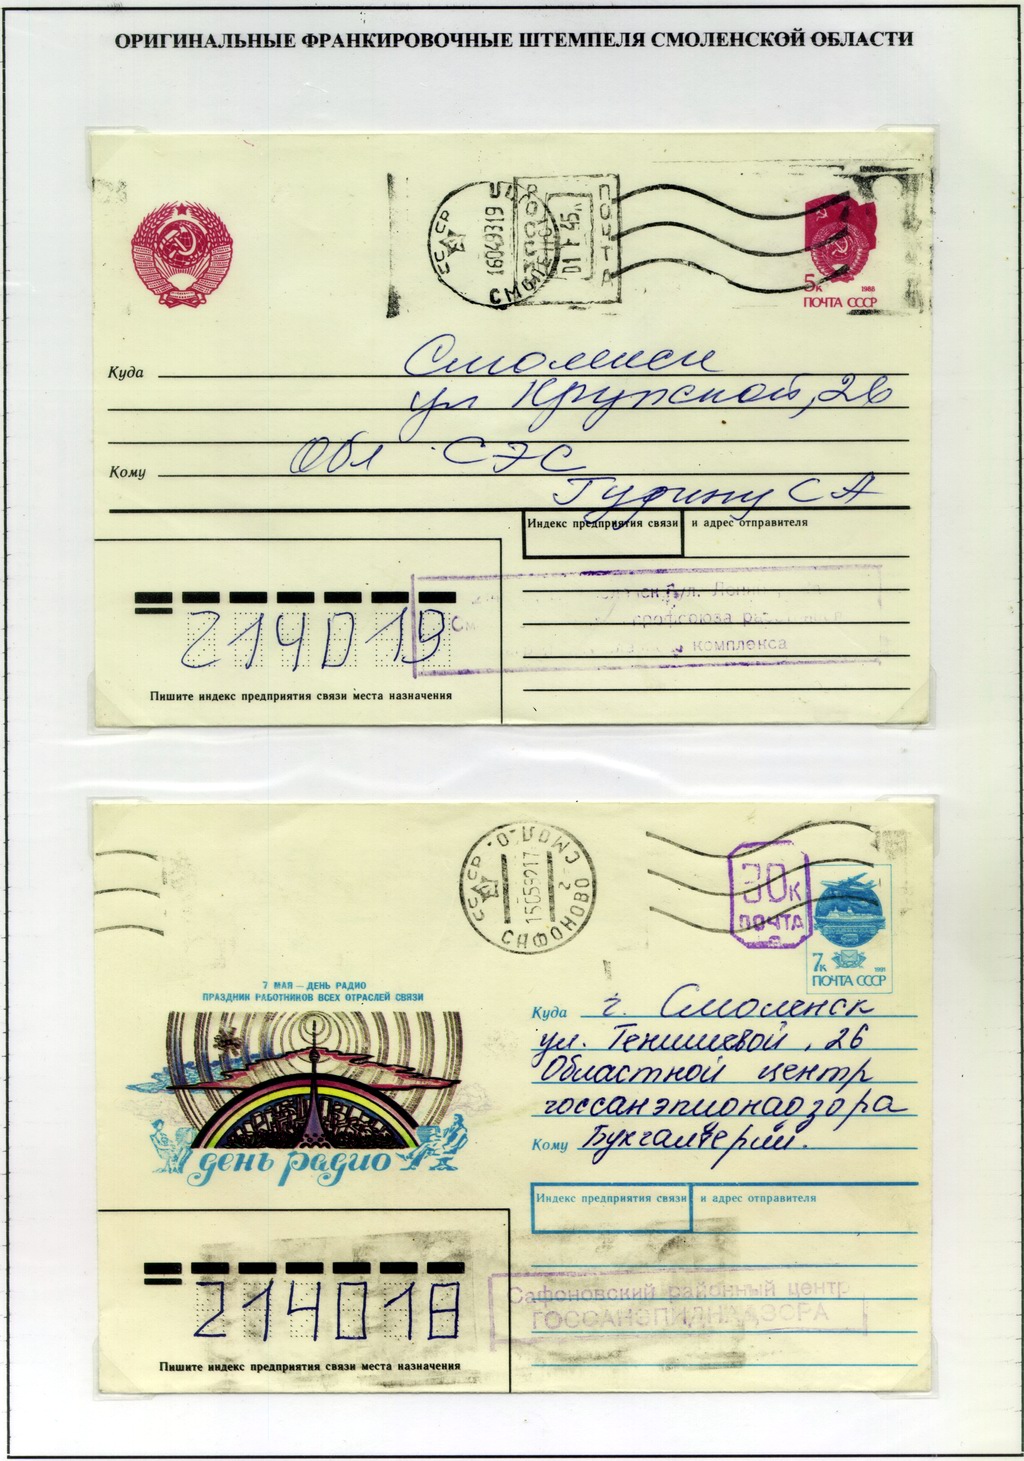 ОРИГИНАЛЬНЫЕ ФРАНКИРОВОЧНЫЕ ШТЕМПЕЛЯ СМОЛЕНСКОЙ ОБЛАСТИ
СССР
16049319
РОССИЯ
01 г 45к
ПОЧТА
5к 1988
ПОЧТА СССР
Куда Смоленск
ул Крупской, 26
Обл СЭС
Кому
Гуфину С А
Индекс предприятия связи и адрес отправителя
ул. Ленин
профсоюза
комплекса
214019
Пишите индекс предприятия связи места назначения
СССР
СМОЛ.О-
15059217
САФОНОВО
2
30к
ПОЧТА
7к 1991
ПОЧТА СССР
7 МАЯ — ДЕНЬ РАДИО
ПРАЗДНИК РАБОТНИКОВ ВСЕХ ОТРАСЛЕЙ СВЯЗИ
день радио
Куда г. Смоленск
ул. Тенишевой, 26
Областной центр
госсанэпионадзора
Кому Бухгалтерии.
Индекс предприятия связи и адрес отправителя
Сафоновский районный центр
ГОССАНЭПИДНАДЗОРА
214018
Пишите индекс предприятия связи места назначения